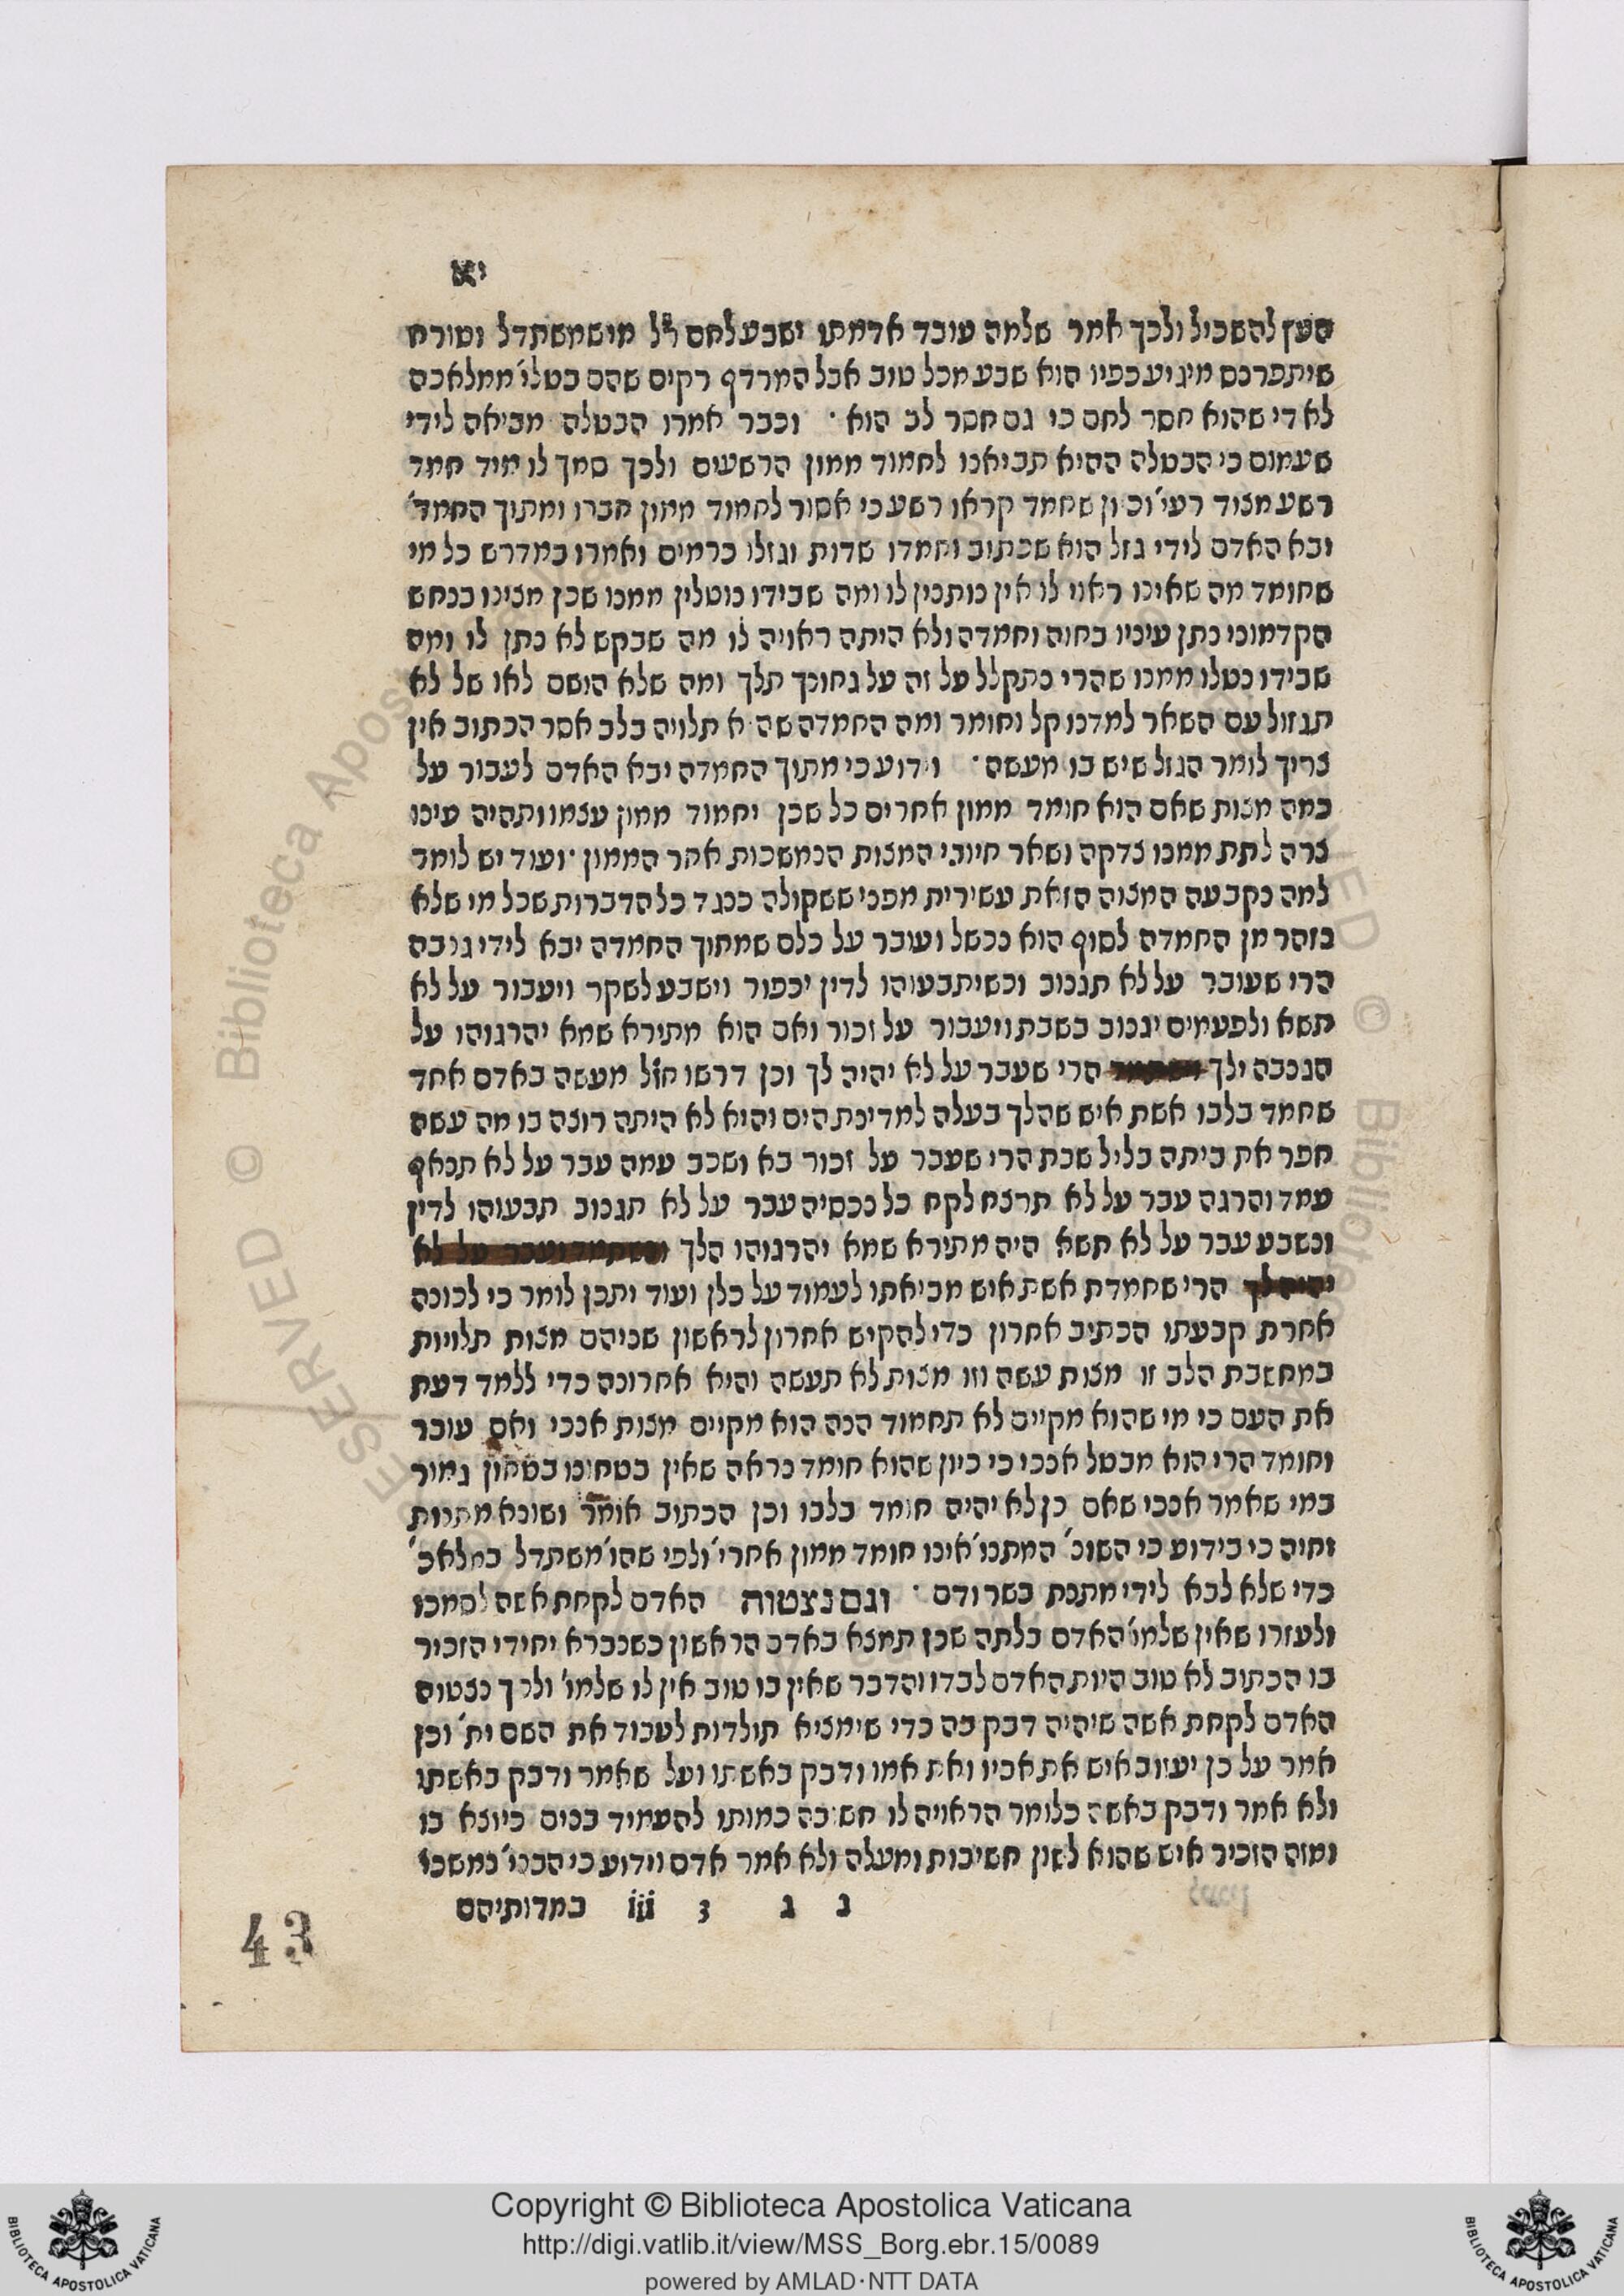 יא
העץ להשכיל ולכך אמר שלמה עובד אדמתו ישבע לחם ר״ל מי שמשתדל וטורח
שיתפרנס מיגיע כפיו הוא שבע מכל טוב אבל המרדף רקים שהם בטלי׳ ממלאכה
לא די שהוא חסר לחם כי גם חסר לב הוא · וכבר אמרו הבטלה מביאה לידי
שעמום כי הבטלה ההיא תביאנו לחמוד ממון הרשעים ולכך סמך לו מיד חמד
רשע מצוד רעי׳ וכיון שחמד קראו רשע כי אסור לחמוד ממון חברו ומתוך החמד׳
ובא האדם לידי גזל הוא שכתוב וחמדו שדות וגזלו כרמים ואמרו במדרש כל מי
שחומד מה שאינו ראוי לו אין נותנין לו ומה שבידו נוטלין ממנו שכן מצינו בנחש
הקדמוני נתן עיניו בחוה וחמדה ולא היתה ראויה לו מה שבקש לא נתן לו ומה
שבידו נטלו ממנו שהרי נתקלל על זה על גחונך תלך ומה שלא הושם לאו של לא
תגזול עם השאר למדנו קל וחומר ומה החמדה שהיא תלויה בלב אסר הכתוב אין
צריך לומר הגזל שיש בו מעשה · וידוע כי מתוך החמדה יבא האדם לעבור על
כמה מצות שאם הוא חומד ממון אחרים כל שכן יחמוד ממון עצמו ותהיה עינו
צרה לתת ממנו צדקה ושאר חיובי המצות הנמשכות אחר הממון · ועוד יש לומר
למה נקבעה המצוה הזאת עשירית מפני ששקולה כנגד כל הדברות שכל מי שלא
נזהר מן החמדה לסוף הוא נכשל ועובר על כלם שמתוך החמדה יבא לידי גניבה
הרי שעובר על לא תגנוב וכשיתבעוהו לדין יכפור וישבע לשקר ויעבור על לא
תשא ולפעמים יגנוב בשבת ויעבור על זכור ואם הוא מתירא שמא יהרגוהו על
הגנבה ילך הרי שעבר על לא יהיה לך וכן דרשו חז״ל מעשה באדם אחד
שחמד בלבו אשת איש שהלך בעלה למדינת הים והיא לא היתה רוצה בו מה עשה
חפר את ביתה בליל שבת הרי שעבר על זכור בא ושכב עמה עבר על לא תנאף
עמד והרגה עבר על לא תרצח לקח כל נכסיה עבר על לא תגנוב תבעוהו לדין
ונשבע עבר על לא תשא היה מתירא שמא יהרגוהו הלך ונשתמד ועבר על לא
יהיה לך הרי שחמדת אשת איש מביאתו לעמוד על כלן ועוד יתכן לומר כי לכונה
אחרת קבעתו הכתיב אחרון כדי להקיש אחרון לראשון שניהם מצות תלויות
במחשבת הלב זו מצות עשה וזו מצות לא תעשה והיא אחרונה כדי ללמד דעת
את העם כי מי שהוא מקיים לא תחמוד הנה הוא מקיים מצות אנכי ואם עובר
וחומד הרי הוא מבטל אנכי כי כיון שהוא חומד נראה שאין בטחונו בטחון גמור
במי שאמר אנכי שאם כן לא יהיה חומד בלבו וכן הכתוב אומר ושונא מתנות
יחיה כי בידוע כי השונ׳ המתנו׳ אינו חומד ממון אחרי׳ ולפי שהו׳ משתדל במלאכ׳
כדי שלא לבא לידי מתנת בשר ודם · וגם נצטוה האדם לקחת אשה לסמכו
ולעזרו שאין שלמו׳ האדם בלתה שכן תמצא באדם הראשון כשנברא יחידי הזכיר
בו הכתוב לא טוב היות האדם לבדו והדבר שאין בו טוב אין לו שלמו׳ ולכך נצטוה
האדם לקחת אשה שיהיה דבק בה כדי שימציא תולדות לעבוד את השם ית׳ וכן
אמר על כן יעזוב איש את אביו ואת אמו ודבק באשתו ועל שאמר ודבק באשתו
ולא אמר ודבק באשה כלומר הראויה לו חשובה כמותו להעמיד בנים כיוצא בו
ומזה הזכיר איש שהוא לשון חשיבות ומעלה ולא אמר אדם וידוע כי הבני׳ נמשכי׳
נ ג 3 iii במדותיהם
43
Copyright © Biblioteca Apostolica Vaticana
http://digi.vatlib.it/view/MSS_Borg.ebr.15/0089
powered by AMLAD·NTT DATA